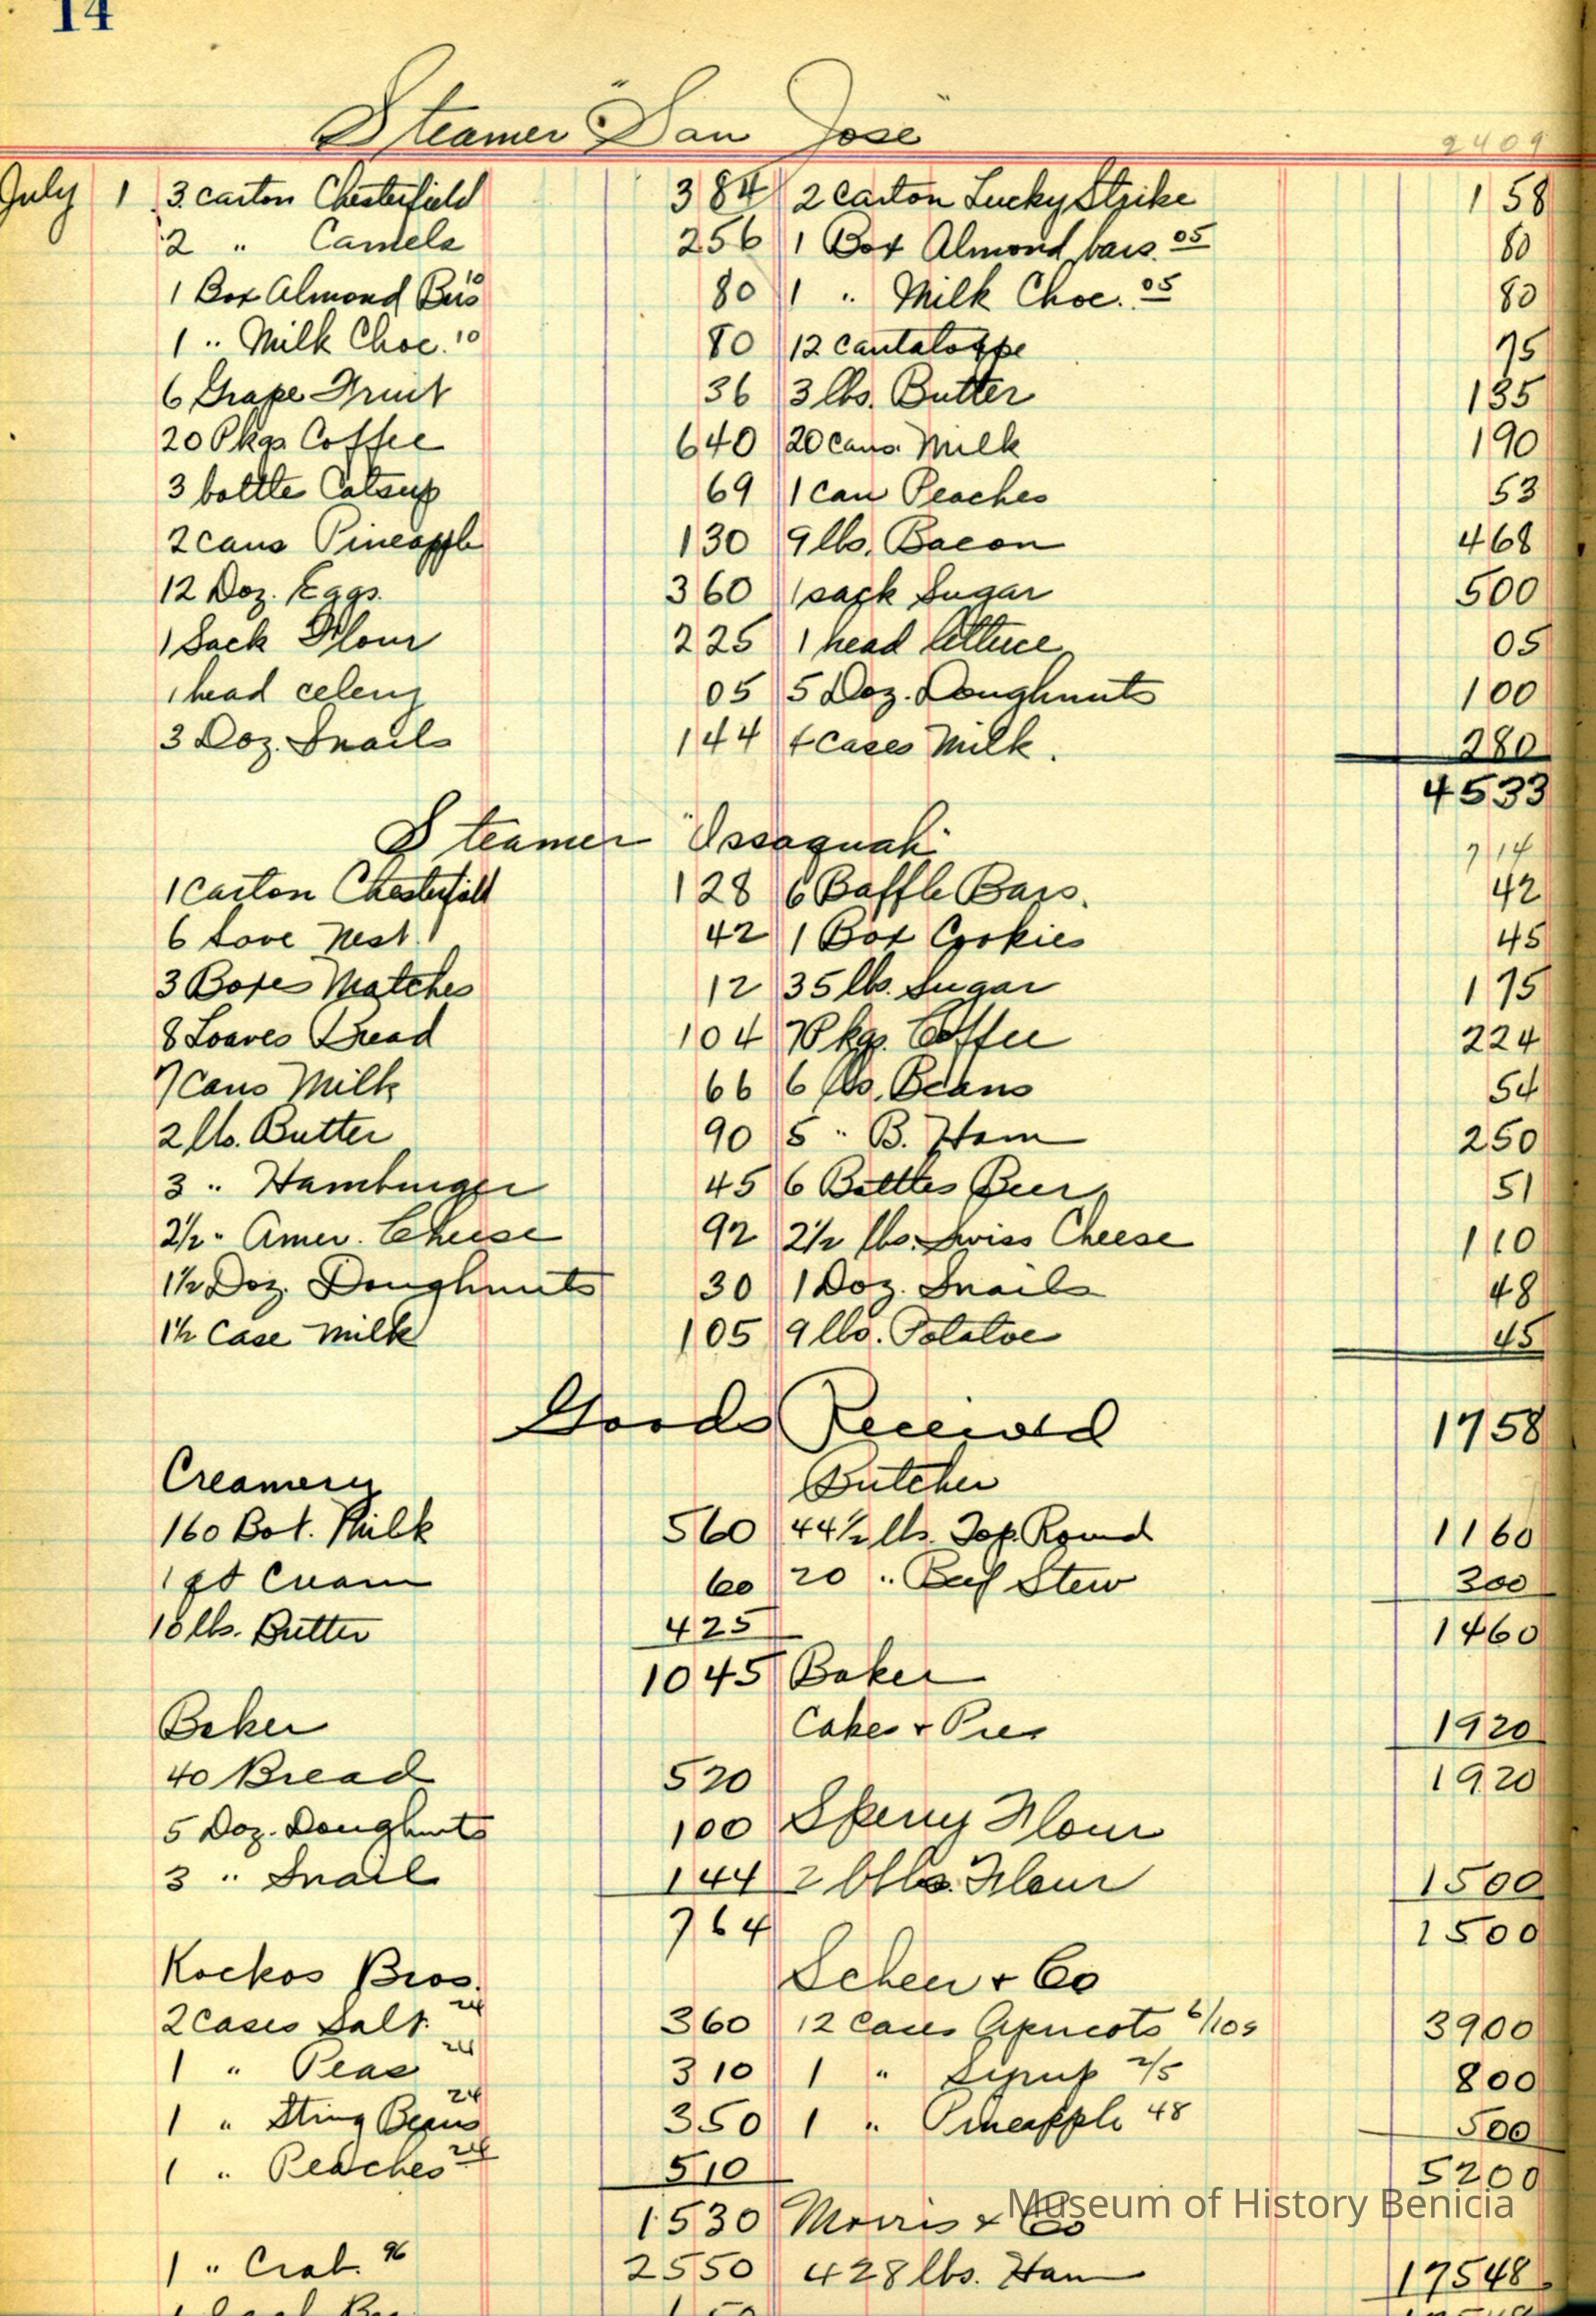 14
Steamer "San Jose"
2409
July 1 3 carton Chesterfield 3 84 2 carton Lucky Strike 1 58
2 " Camels 2 56 1 Box Almond bars 05 80
1 Box Almond Bars 10 80 1 " Milk Choc. 05 80
1 " Milk Choc. 10 80 12 cantaloupe 75
6 Grape Fruit 36 3 lbs. Butter 1 35
20 Pkgs Coffee 6 40 20 cans Milk 1 90
3 bottle Catsup 69 1 can Peaches 53
2 cans Pineapple 1 30 9 lbs. Bacon 4 68
12 Doz. Eggs. 3 60 1 sack Sugar 5 00
1 Sack Flour 2 25 1 head lettuce 05
1 head celery 05 5 Doz. Doughnuts 1 00
3 Doz. Snails 1 44 4 cases Milk. 2 80
45 33
Steamer "Issaquah"
7 14
1 Carton Chesterfield 1 28 6 Baffle Bars. 42
6 Love Nest 42 1 Box Cookies 45
3 Boxes Matches 12 35 lbs. Sugar 1 75
8 Loaves Bread 1 04 7 Pkgs. Coffee 2 24
7 Cans Milk 66 6 lbs. Beans 54
2 lb. Butter 90 5 " B. Ham 2 50
3 " Hamburger 45 6 Bottles Beer 51
2½ " Amer. Cheese 92 2½ lbs. Swiss Cheese 1 10
1½ Doz. Doughnuts 30 1 Doz. Snails 48
1½ Case Milk 1 05 9 lbs. Potatoe 45
Goods Received
17 58
Creamery Butcher
160 Bot. Milk 5 60 44½ lbs. Top Round 11 60
1 qt Cream 60 20 " Beef Stew 3 00
10 lbs. Butter 4 25 14 60
10 45 Baker
Baker Cakes + Pies 19 20
40 Bread 5 20 19 20
5 Doz. Doughnuts 1 00 Sperry Flour
3 " Snail 1 44 2 bbls. Flour 15 00
7 64 15 00
Kockos Bros. Scheer + Co
2 Cases Salt 24 3 60 12 Cases Apricots 6/10s 39 00
1 " Peas 24 3 10 1 " Syrup 2/5 8 00
1 " String Beans 24 3 50 1 " Pineapple 48 5 00
1 " Peaches 24 5 10 52 00
15 30 Morris & Co
1 " Crab. 96 25 50 428 lbs. Ham 175 48
Museum of History Benicia